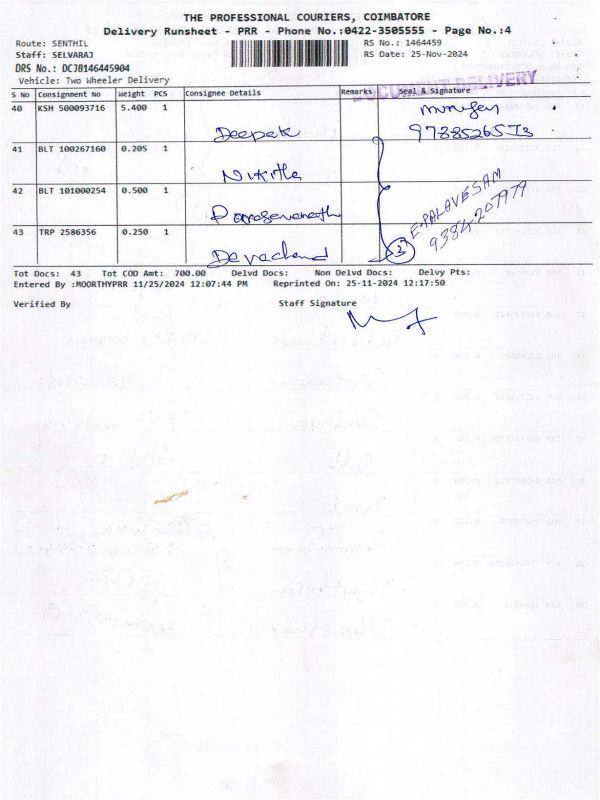 THE PROFESSIONAL COURIERS, COIMBATORE
Delivery Runsheet - PRR - Phone No.:0422-3505555 - Page No.:4
Route: SENTHIL RS No.: 1464459
Staff: SELVARAJ RS Date: 25-Nov-2024
DRS No.: DCJB146445904
Vehicle: Two Wheeler Delivery
DOCUMENT DELIVERY
S No Consignment No Weight PCS Consignee Details Remarks Seal & Signature
40 KSH 500093716 5.400 1
Deepak
41 BLT 100267160 0.205 1
Nikitha
42 BLT 101000254 0.500 1
43 TRP 2586356 0.250 1
Devachand
E.PALAVESAM
9384207979
3
Tot Docs: 43 Tot COD Amt: 700.00 Delvd Docs: Non Delvd Docs: Delvy Pts:
Entered By :MOORTHYPRR 11/25/2024 12:07:44 PM Reprinted On: 25-11-2024 12:17:50
Verified By Staff Signature